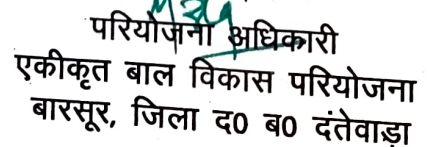 परियोजना अधिकारी
एकीकृत बाल विकास परियोजना
बारसूर, जिला द0 ब0 दंतेवाड़ा